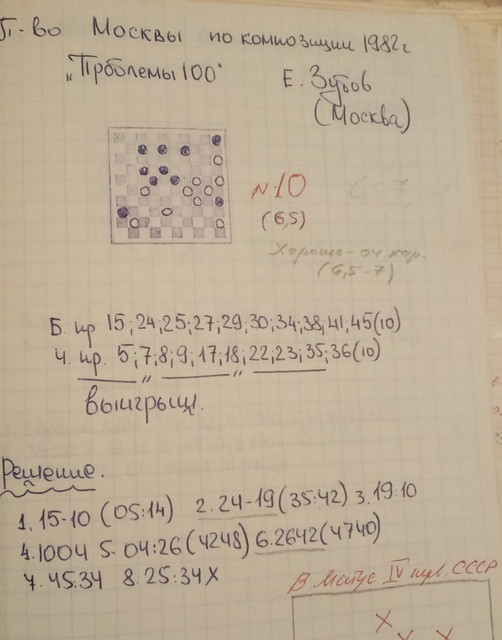 П-во Москвы по композиции 1982г
„Прблемы 100“ Е. Зубов
(Москва)
№10
(6,5)
Хорошо-оч хор.
(6,5-7)
Б. пр 15;24;25;27;29;30;34;38;41;45(10)
Ч. пр. 5;7;8;9;17;18;22;23;35;36(10)
Выигрыш.
Решение.
1.15-10 (05:14) 2.24-19(35:42) 3.19:10
4.1004 5.04:26(4248) 6.2642(4740)
7.45:34 8.25:34X
В Матче IV СССР